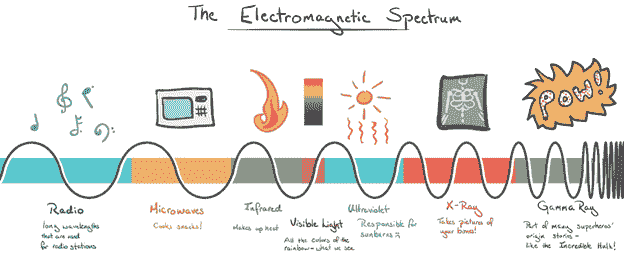 The Electromagnetic Spectrum
POW!
Radio
long wavelengths
that are used
for radio stations
Microwaves
Cooks snacks!
Infrared
Makes up heat
Visible Light
All the colors of the
rainbow - what we see
Ultraviolet
Responsible for
sunburns
X-Ray
Takes pictures of
your bones!
Gamma Ray
Part of many superheros'
origin stories -
like the Incredible Hulk!